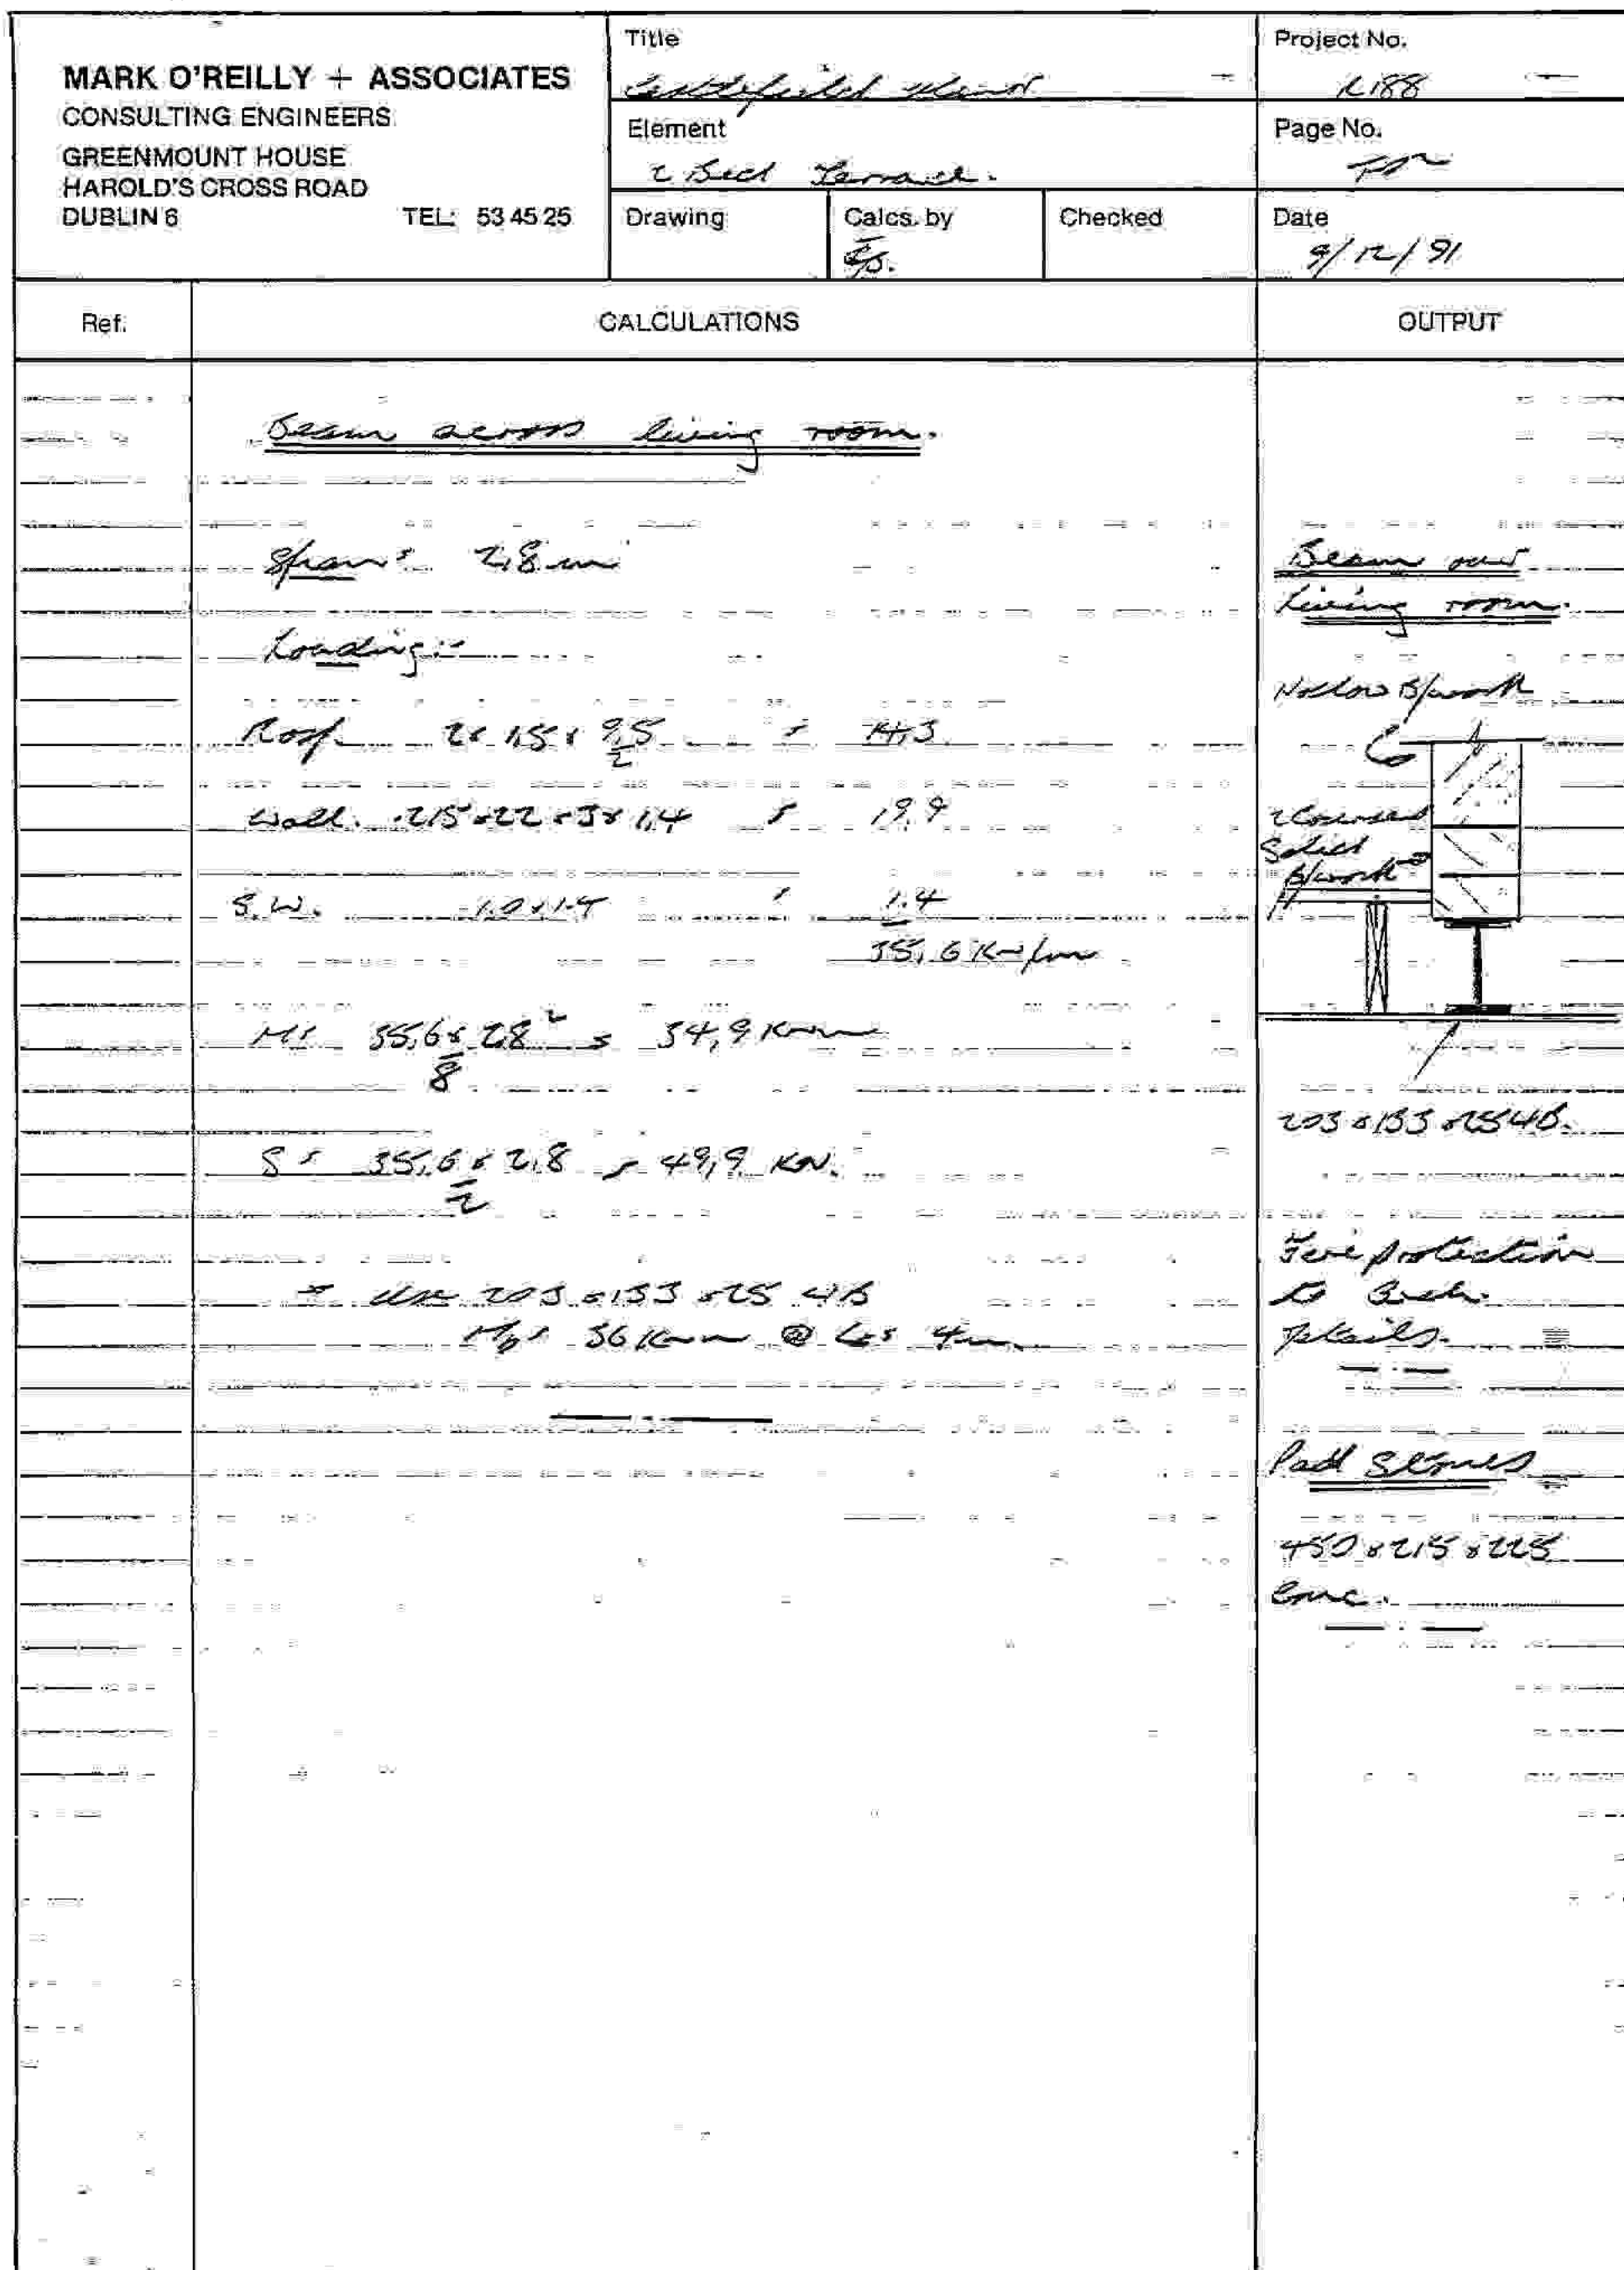 MARK O'REILLY + ASSOCIATES
CONSULTING ENGINEERS
GREENMOUNT HOUSE
HAROLD'S CROSS ROAD
DUBLIN 6 TEL: 53 45 25
Title
Project No.
R188
Element
2 Bed Terrace.
Page No.
Drawing
Calcs. by
Checked
Date
9/12/91
Ref.
CALCULATIONS
OUTPUT
Beam across living room.
Span: 2,8 m
Loading:-
Roof 2 x 1,5 x 9,5/2 = 14,3
Wall. .215 x 22 x 3 x 1,4 = 19.9
S.W. 1.0 x 1.4 = 1.4
35,6 KN/m
M = 35,6 x 2,8² / 8 = 34,9 KNm
S = 35,6 x 2,8 / 2 = 49,9 KN.
Use 203 x 133 x 25 UB
36 KNm @ Le = 4m
Beam over
living room.
Hollow B/work
2 Courses
Solid
B/work
203 x 133 x 25 UB.
Fire protection
to Arch.
details.
Pad Stones
450 x 215 x 225
conc.